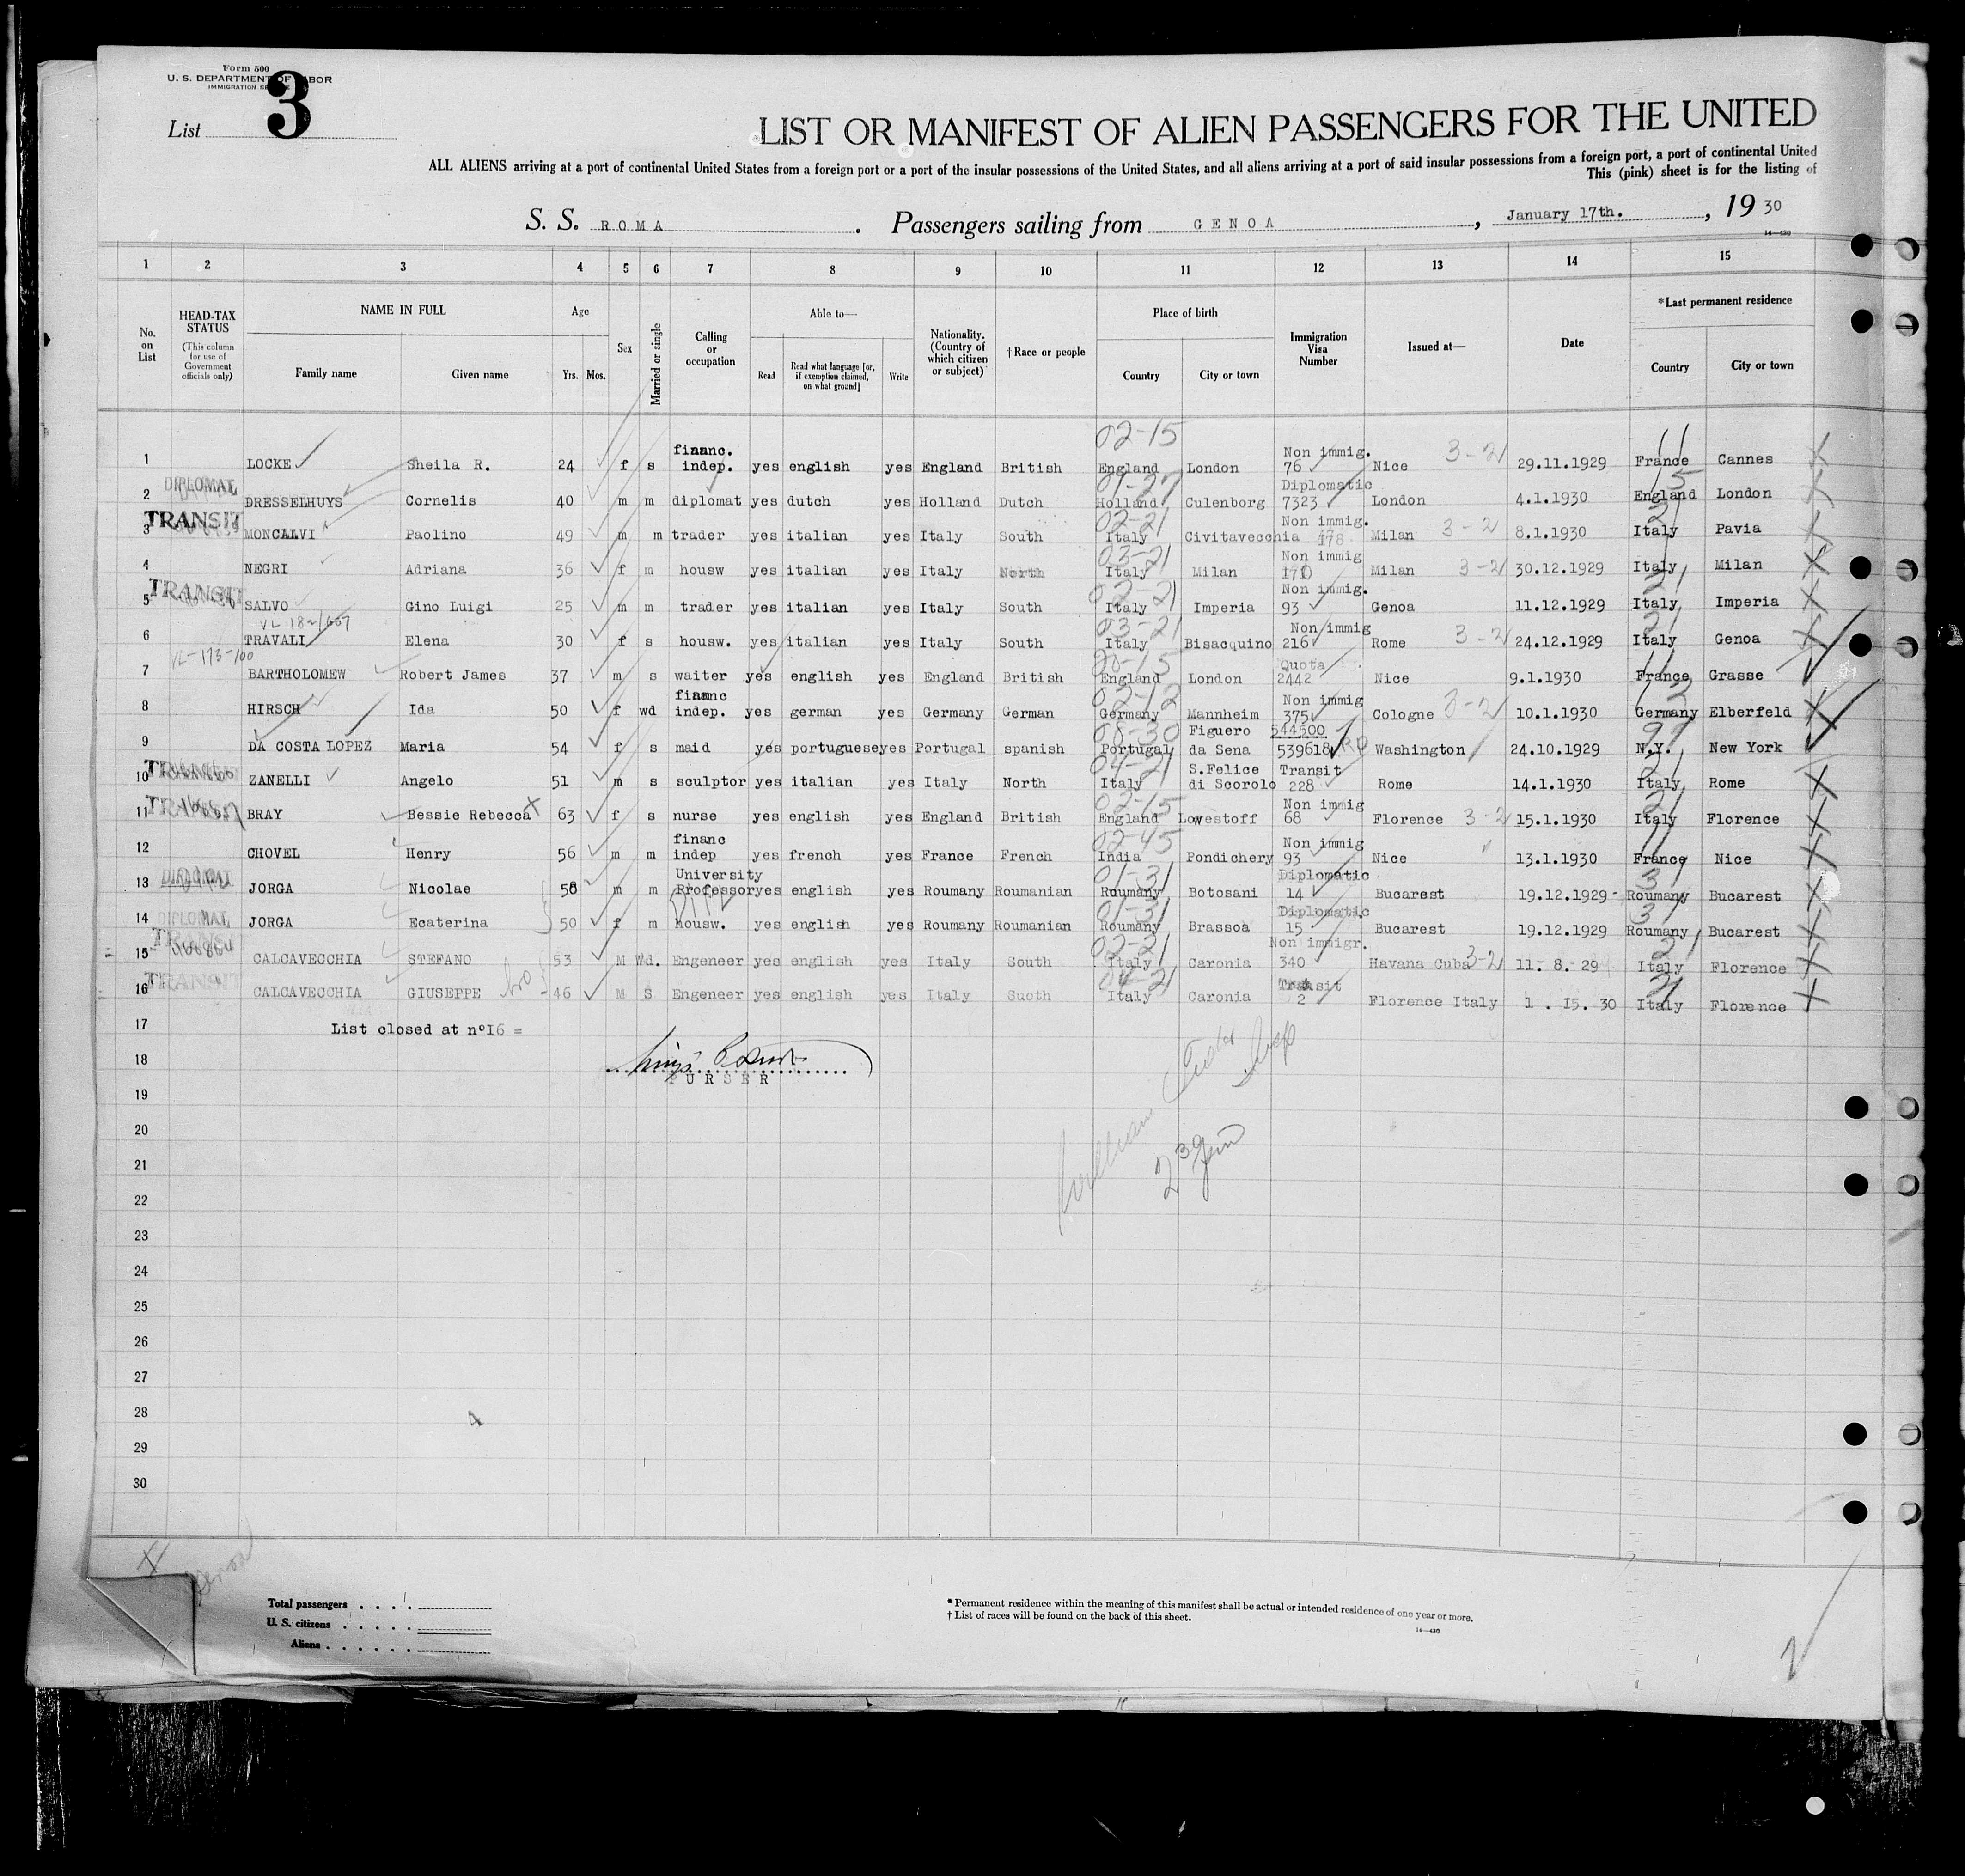 Form 500
U. S. DEPARTMENT OF LABOR
IMMIGRATION SERVICE
List 3
LIST OR MANIFEST OF ALIEN PASSENGERS FOR THE UNITED
ALL ALIENS arriving at a port of continental United States from a foreign port or a port of the insular possessions of the United States, and all aliens arriving at a port of said insular possessions from a foreign port, a port of continental United
This (pink) sheet is for the listing of
S. S. ROMA . Passengers sailing from GENOA , January 17th. , 19 30
14—430
1 2 3 4 5 6 7 8 9 10 11 12 13 14 15
No. on List
HEAD-TAX STATUS (This column for use of Government officials only)
NAME IN FULL Family name Given name
Age Yrs. Mos.
Sex
Married or single
Calling or occupation
Able to— Read Read what language [or, if exemption claimed, on what ground] Write
Nationality. (Country of which citizen or subject)
†Race or people
Place of birth Country City or town
Immigration Visa Number
Issued at—
Date
*Last permanent residence Country City or town
1 LOCKE Sheila R. 24 f s financ. indep. yes english yes England British 02-15 England London Non immig. 76 Nice 3-2 29.11.1929 France Cannes
2 DIPLOMAT DRESSELHUYS Cornelis 40 m m diplomat yes dutch yes Holland Dutch 01-27 Holland Culenborg Diplomatic 7323 London 4.1.1930 England London
3 TRANSIT MONCALVI Paolino 49 m m trader yes italian yes Italy South 02-21 Italy Civitavecchia Non immig. 178 Milan 3-2 8.1.1930 Italy Pavia
4 NEGRI Adriana 36 f m housw yes italian yes Italy North 03-21 Italy Milan Non immig Milan 3-2 30.12.1929 Italy Milan
5 TRANSIT SALVO Gino Luigi 25 m m trader yes italian yes Italy South 02-21 Italy Imperia Non immig. 93 Genoa 11.12.1929 Italy Imperia
6 TRAVALI Elena 30 f s housw. yes italian yes Italy South 03-21 Italy Bisacquino Non immig 216 Rome 3-2 24.12.1929 Italy Genoa
7 VL-173-100 BARTHOLOMEW Robert James 37 m s waiter yes english yes England British England London Quota 2442 Nice 9.1.1930 France Grasse
8 HIRSCH Ida 50 f wd financ indep. yes german yes Germany German 02-12 Germany Mannheim Non immig 375 Cologne 3-2 10.1.1930 Germany Elberfeld
9 DA COSTA LOPEZ Maria 54 f s maid yes portuguese yes Portugal spanish 08-30 Portugal Figuero da Sena 544500 539618 RP Washington 24.10.1929 N.Y. New York
10 TRANSIT ZANELLI Angelo 51 m s sculptor yes italian yes Italy North 04-21 Italy S.Felice di Scorolo Transit 228 Rome 14.1.1930 Italy Rome
11 TRANSIT BRAY Bessie Rebecca 63 f s nurse yes english yes England British 02-15 England Lowestoff Non immig 68 Florence 3-2 15.1.1930 Italy Florence
12 CHOVEL Henry 56 m m financ indep yes french yes France French 02-45 India Pondichery Non immig 93 Nice 13.1.1930 France Nice
13 DIPLOMAT JORGA Nicolae 58 m m University Professor yes english yes Roumany Roumanian 01-31 Roumany Botosani Diplomatic 14 Bucarest 19.12.1929 Roumany Bucarest
14 DIPLOMAT JORGA Ecaterina 50 f m housw. yes english yes Roumany Roumanian 01-31 Roumany Brassoa Diplomatic 15 Bucarest 19.12.1929 Roumany Bucarest
15 TRANSIT CALCAVECCHIA STEFANO 53 M Wd. Engeneer yes english yes Italy South 02-21 Italy Caronia Non immigr. 340 Havana Cuba 3-2 11. 8. 29 Italy Florence
16 TRANSIT CALCAVECCHIA GIUSEPPE bro 46 M S Engeneer yes english yes Italy South 04-21 Italy Caronia Transit 2 Florence Italy 1 . 15. 30 Italy Florence
17 List closed at n°I6 =
18
PURSER
19
20
21
22
23
24
25
26
27
28
29
30
Total passengers
U. S. citizens
Aliens
* Permanent residence within the meaning of this manifest shall be actual or intended residence of one year or more.
† List of races will be found on the back of this sheet.
14—430